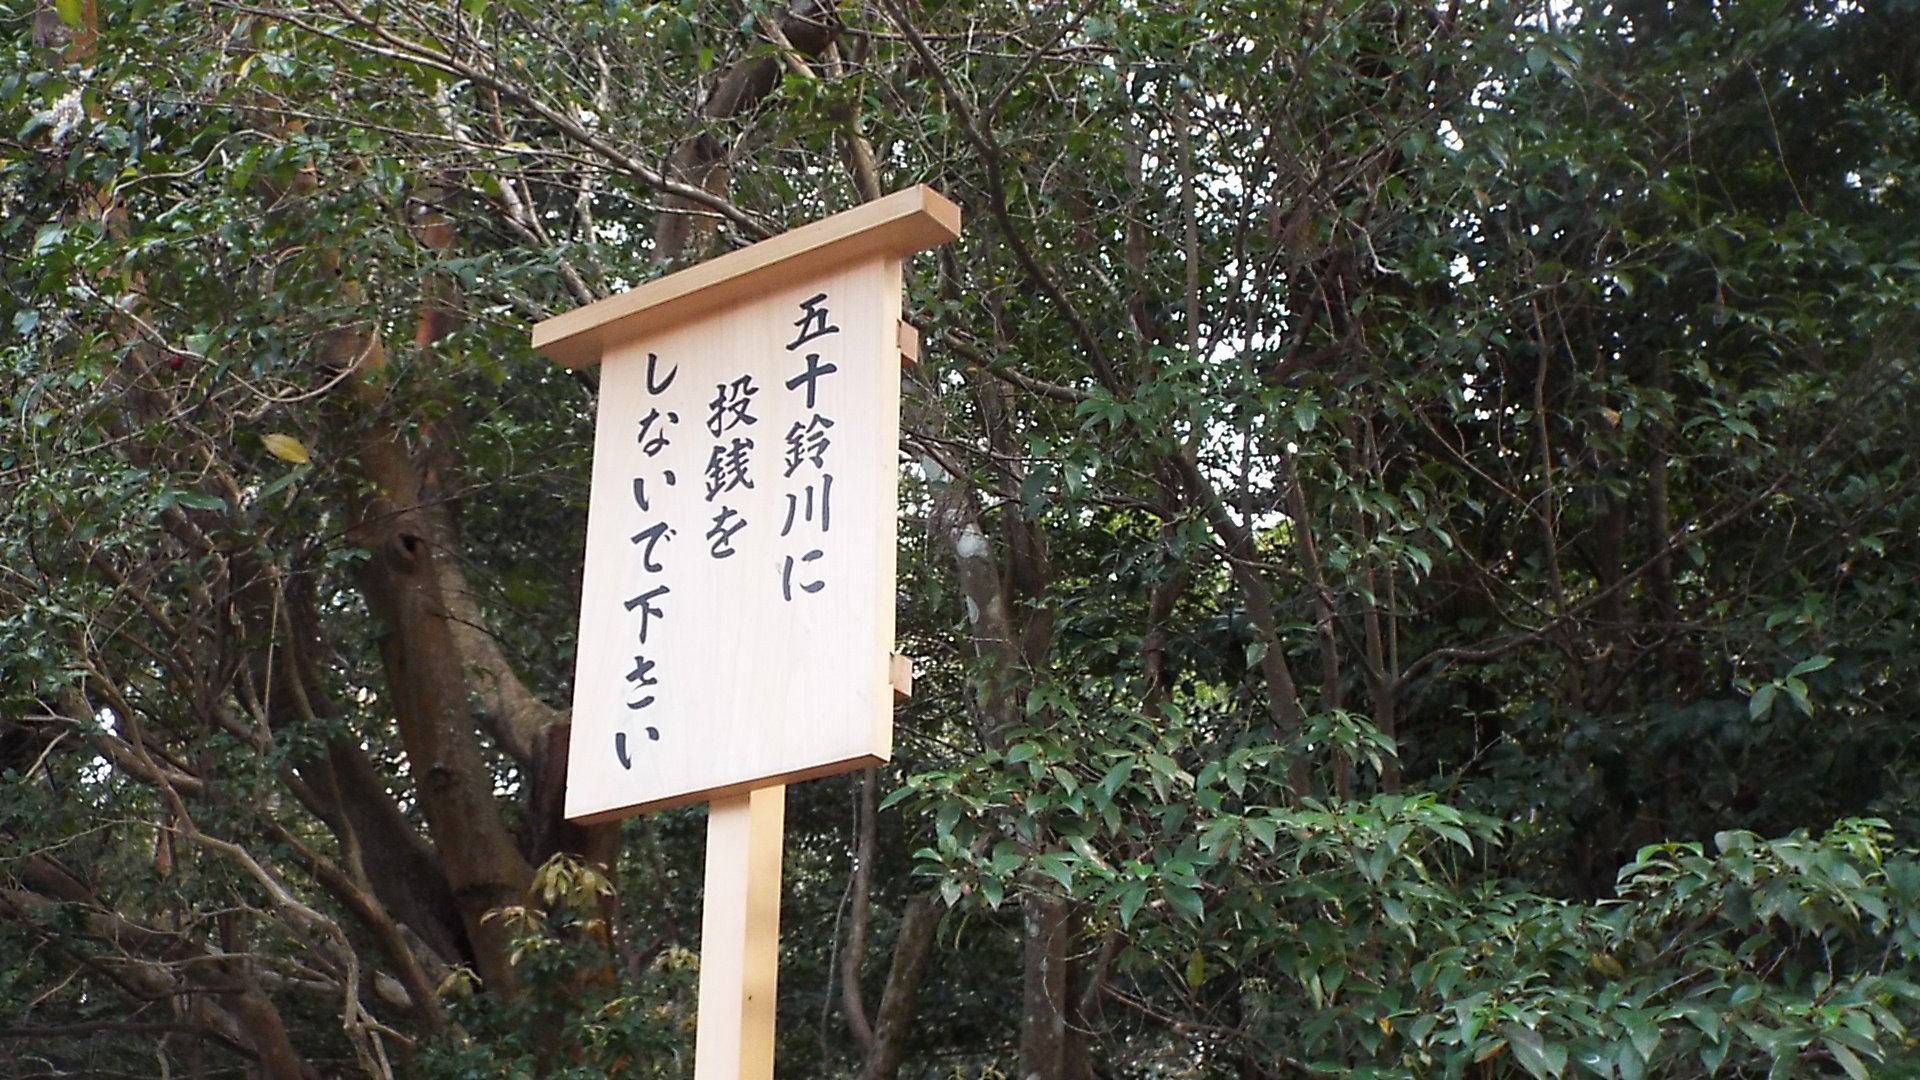 五十鈴川に
投銭を
しないで下さい